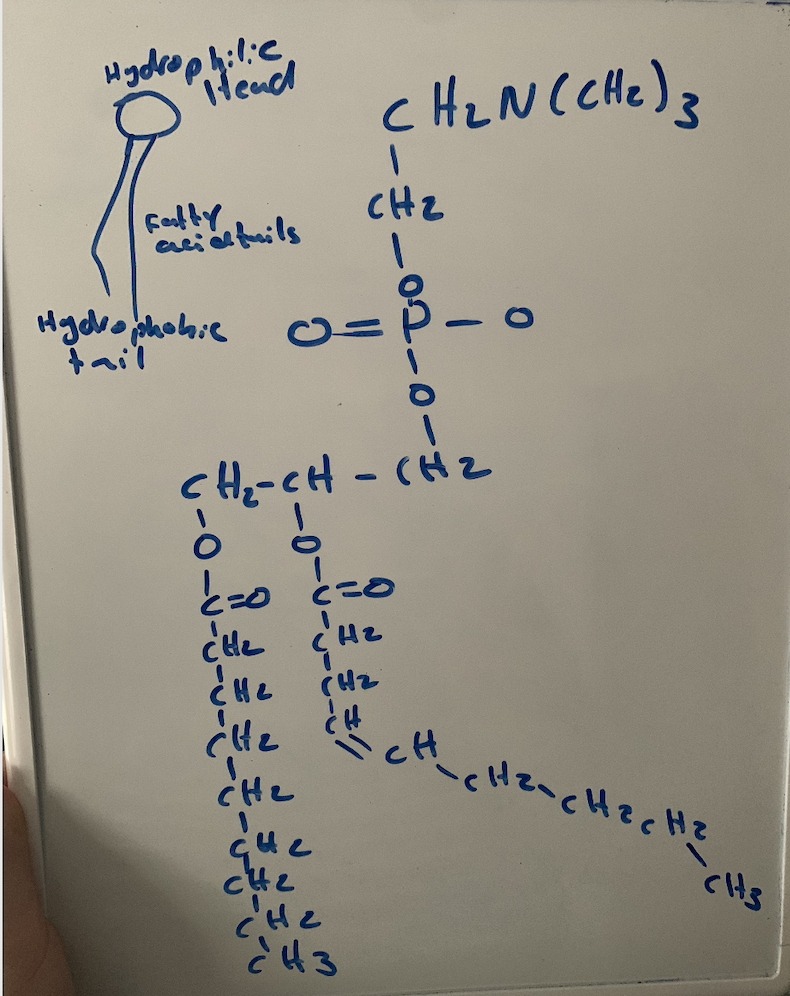 Hydrophilic
Head
Fatty
acid tails
Hydrophobic
tail
CH2N(CH2)3
CH2
O
O=P-O
O
CH2-CH-CH2
O O
C=O C=O
CH2 CH2
CH2 CH2
CH2 CH
CH2 CH
CH2 CH2
CH2 CH2
CH2 CH2
CH3 CH3